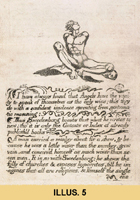 I have always found that Angels have the vani-
ty to speak of themselves as the only wise; this they
do with a confident insolence sprouting from systema-
tic reasoning:
Thus Swedenborg boasts that what he writes is
new; tho' it is only the Contents or Index of already
publish'd books
A man carried a monkey about for a shew, & be-
cause he was a little wiser than the monkey, grew
vain, and conciev'd himself as much wiser than se-
ven men. It is so with Swedenborg; he shews the
folly of churches & exposes hypocrites, till he im-
agines that all are religious, & himself the single
ILLUS. 5